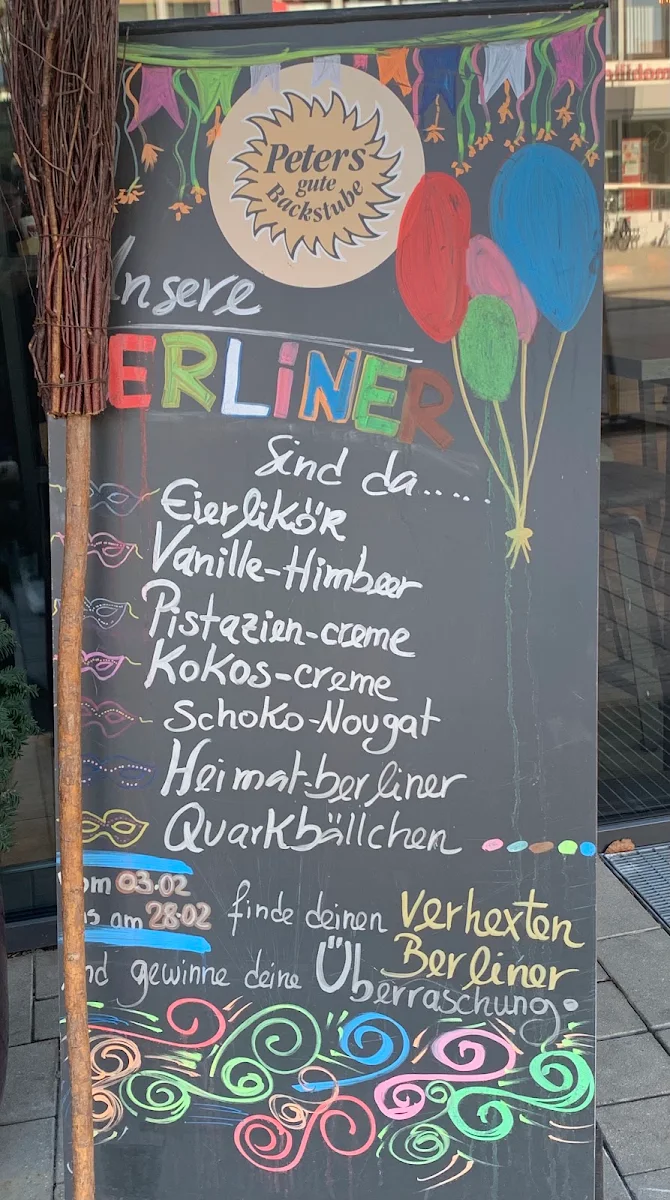 Peters
gute
Backstube
Unsere
ERLiNER
Sind da.....
Eierlikör
Vanille-Himbeer
Pistazien-creme
Kokos-creme
Schoko-Nougat
Heimat-berliner
Quarkbällchen
om 03.02
s am 28.02
finde deinen verhexten
Berliner
nd gewinne deine Überraschung.